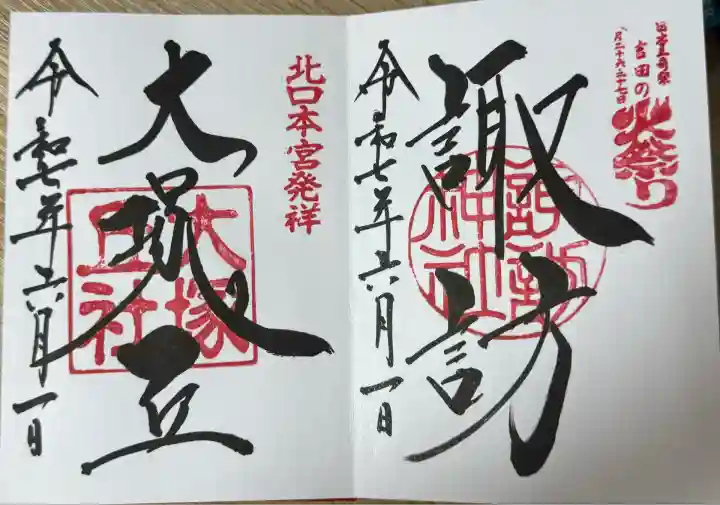 日本三奇祭
吉田の
火祭り
八月二十六・二十七日
諏訪
諏訪神社
令和七年六月一日
北口本宮発祥
大塚丘
大塚丘社
令和七年六月一日